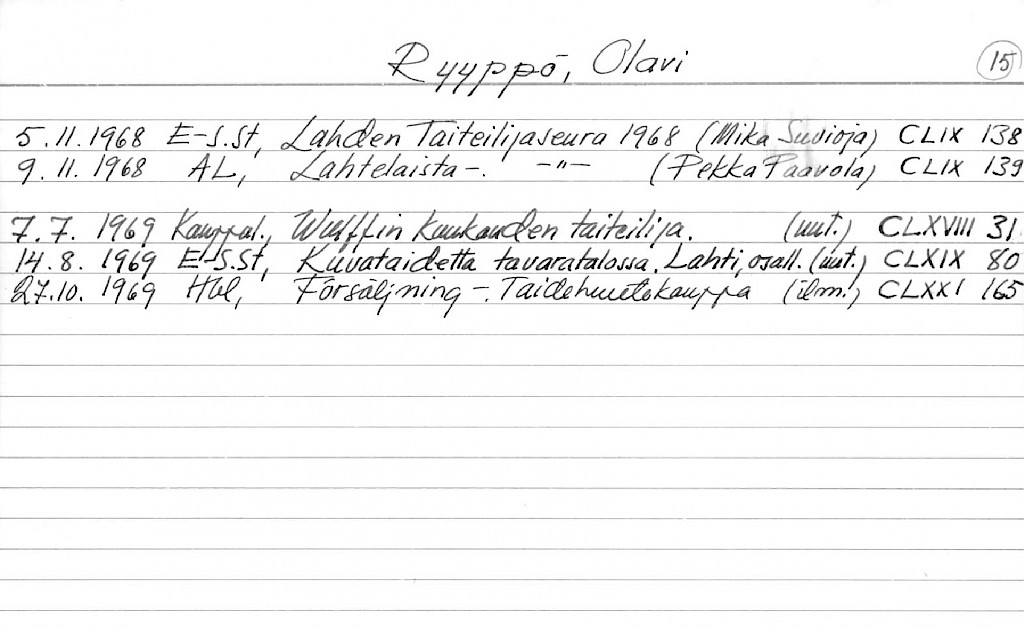 Ryyppö, Olavi 15
5.11.1968 E-S.St, Lahden Taiteilijaseura 1968 (Mika Suvioja) CLIX 138
9.11.1968 AL, Lahtelaista-. -"- (Pekka Paavola) CLIX 139
7.7.1969 Kauppal., Wulffin kuukauden taiteilija. (uut.) CLXVIII 31
14.8.1969 E-S.St, Kuvataidetta tavaratalossa, Lahti, osall. (uut.) CLXIX 80
27.10.1969 Hbl, Försäljning-. Taidehuutokauppa (ilm.) CLXXI 165